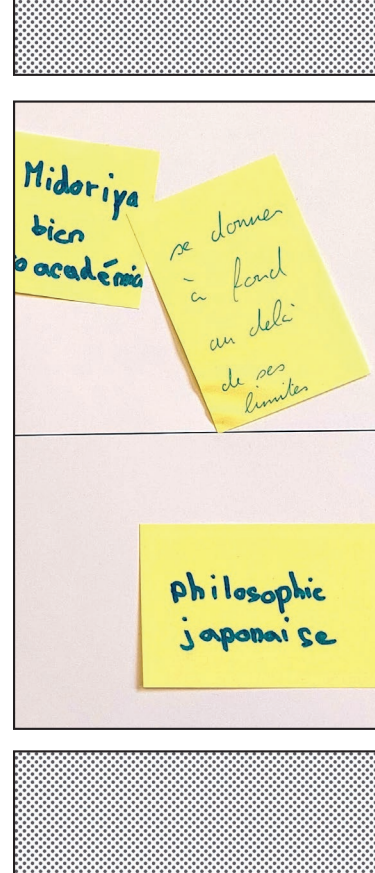 Midoriya
bien
o académia
se donner
à fond
au delà
de ses
limites
philosophie
japonaise